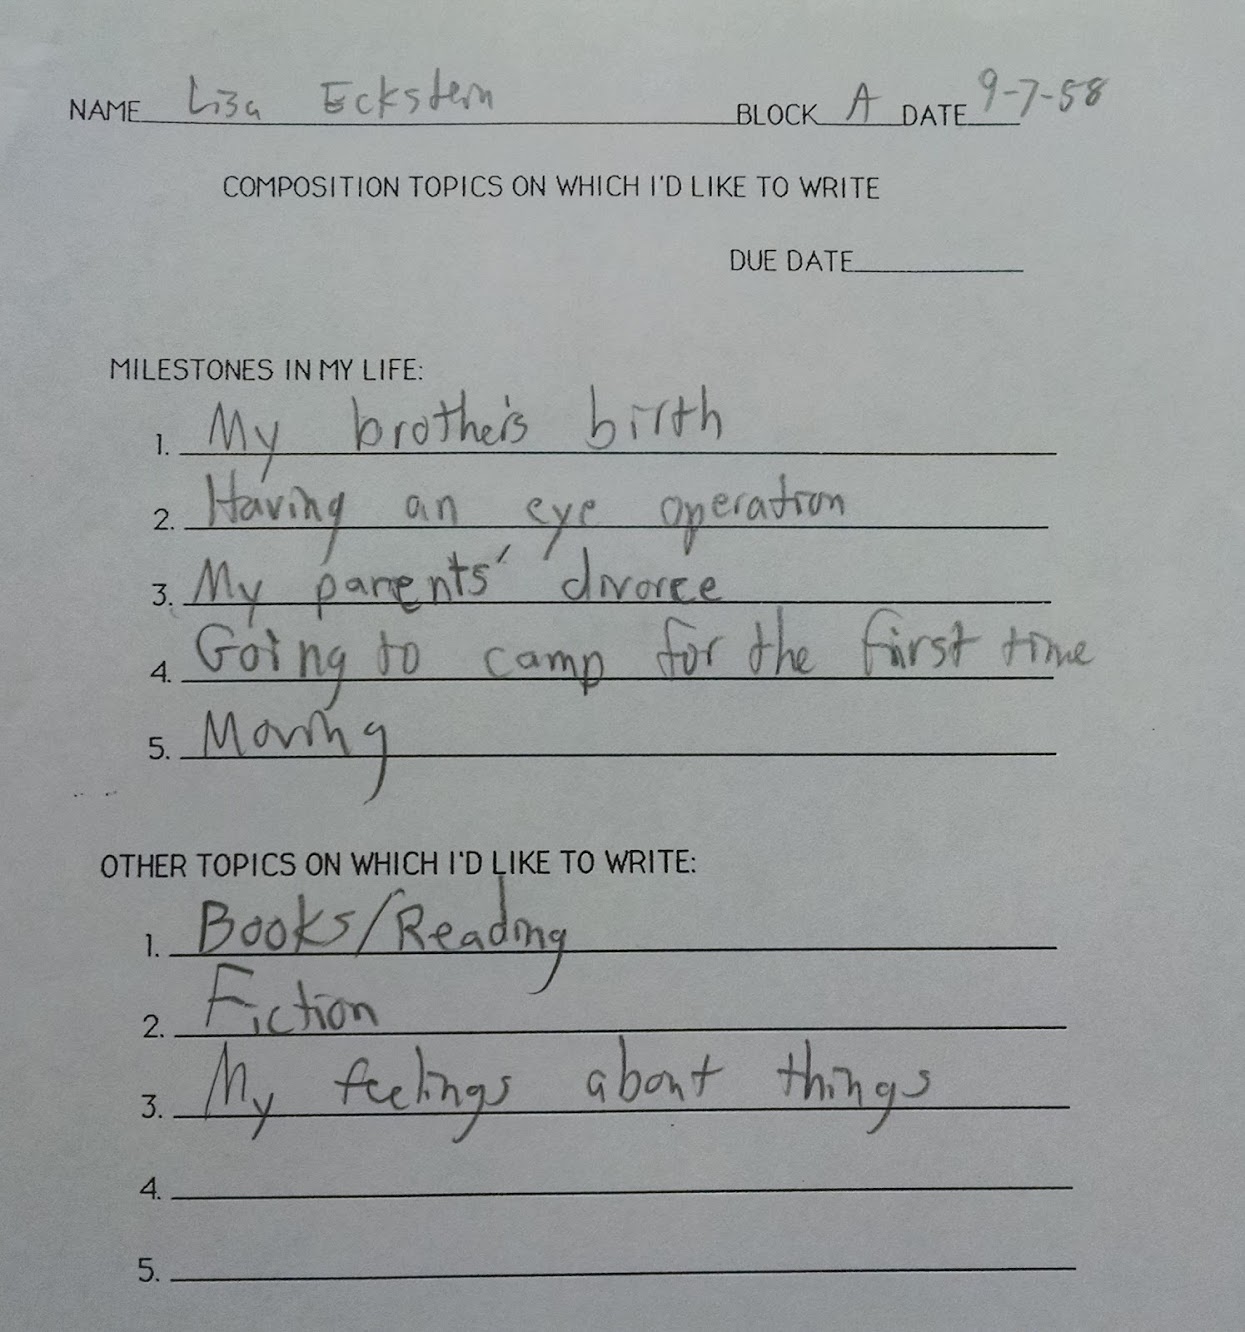 NAME Lisa Eckstein BLOCK A DATE 9-7-58
COMPOSITION TOPICS ON WHICH I'D LIKE TO WRITE
DUE DATE
MILESTONES IN MY LIFE:
1. My brother's birth
2. Having an eye operation
3. My parents' divorce
4. Going to camp for the first time
5. Moving
OTHER TOPICS ON WHICH I'D LIKE TO WRITE:
1. Books/Reading
2. Fiction
3. My feelings about things
4.
5.